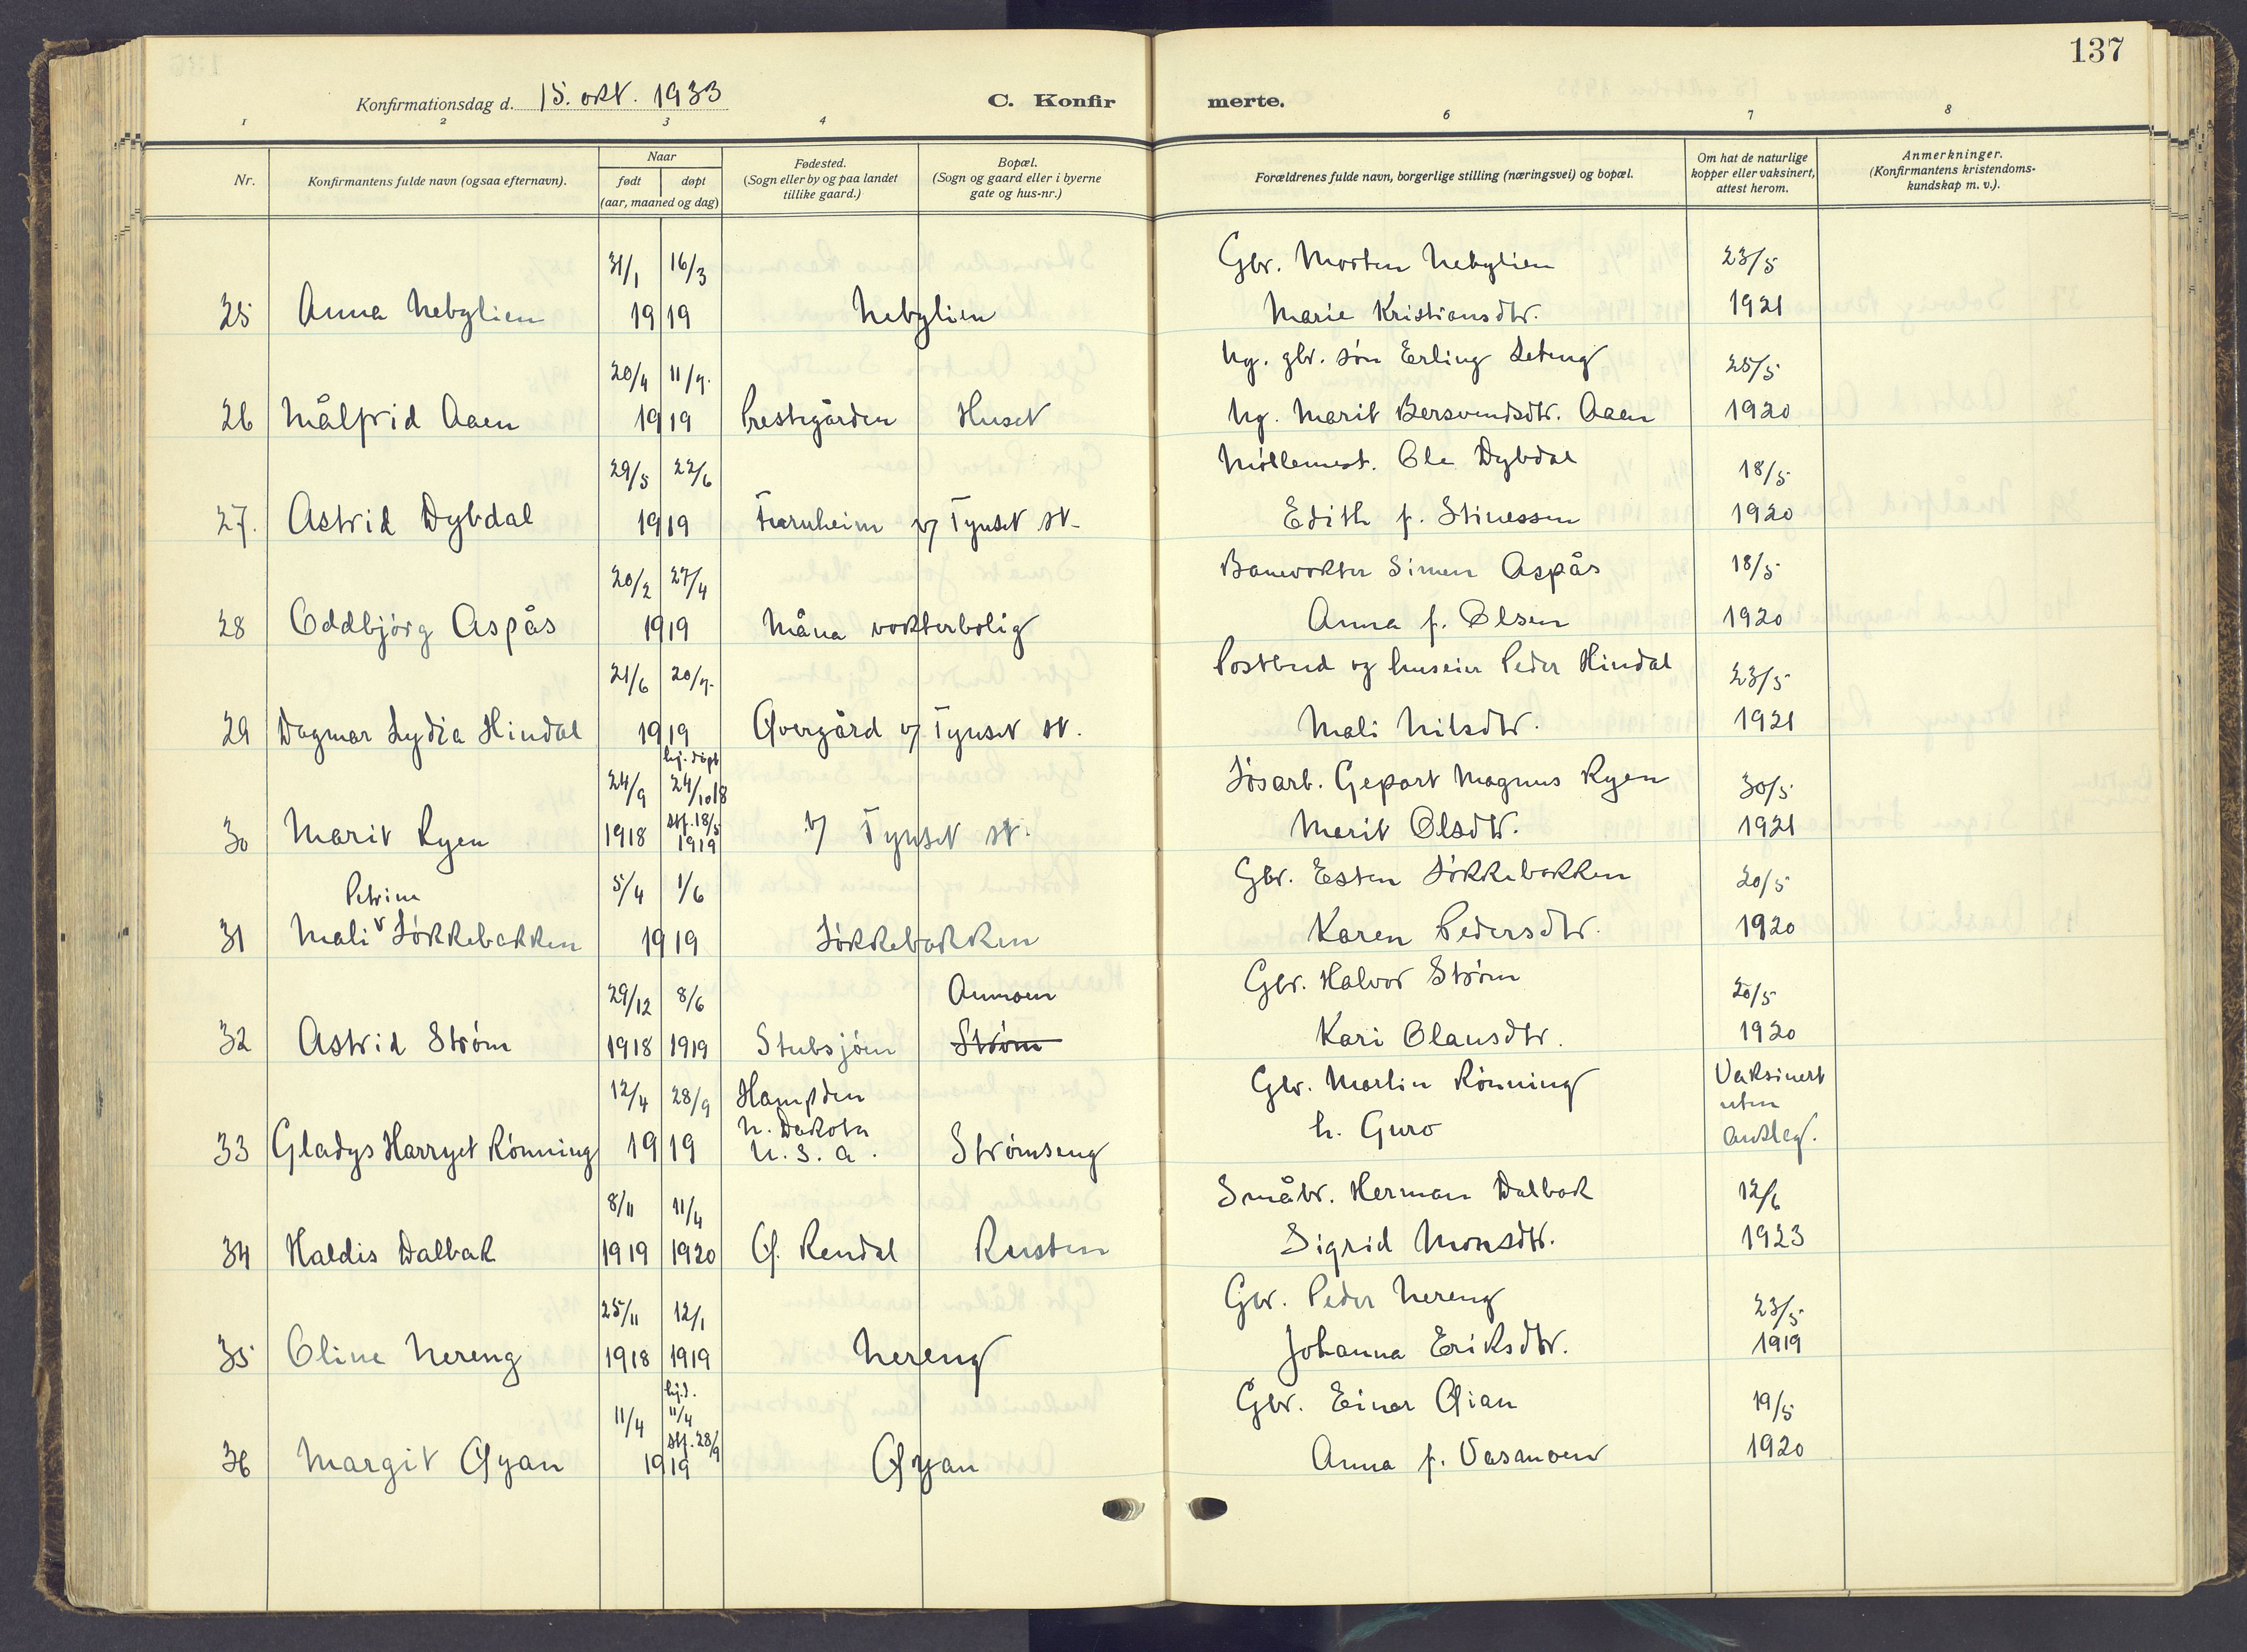 137
Konfirmationsdag d. 15. okt. 1933 C. Konfirmerte.
1 2 3 4 6 7 8
Nr. Konfirmantens fulde navn (ogsaa efternavn). Naar født døpt (aar, maaned og dag) Fødested. (Sogn eller by og paa landet tillike gaard.) Bopæl. (Sogn og gaard eller i byerne gate og hus-nr.) Forældrenes fulde navn, borgerlige stilling (næringsvei) og bopæl. Om hat de naturlige kopper eller vaksinert, attest herom. Anmerkninger. (Konfirmantens kristendoms-kundskap m. v.).
31/1 16/3 Gbr. Morten Nebylien 23/5
25 Anna Nebylien 1919 Nebylien Marie Kristiansdtr. 1921
20/4 11/7. Ug. gbr. søn Erling Leteng 25/5
26 Målfrid Aaen 1919 Prestegården Huset Ug. Marit Bersvendsdtr. Aaen 1920
29/5 22/6 Møllemest. Ole Dybdal 18/5
27. Astrid Dybdal 1919 Furuheim v/ Tynset st. Edith f. Stinessen 1920
20/2 27/4 Banevokter Simen Aspås 18/5
28 Oddbjørg Aspås 1919 Måna vokterbolig Anna f. Olsen 1920
21/6 20/7. Postbud og huseier Peder Hindal 23/5
29 Dagmar Lydia Hindal 1919 Øvergård v/ Tynset st. Mali Nilsdtr. 1921
hj. døpt
24/9 24/10 18 Løsarb. Gepart Magnus Ryen 30/5
30 Marit Ryen 1918 stf. 18/5 1919 v/ Tynset st. Marit Olsdtr. 1921
Petrine 5/4 1/6 Gbr. Esten Løkkebakken 20/5
31 Mali Løkkebakken 1919 Løkkebakken Karen Pedersdtr. 1920
29/12 8/6 Aumoen Gbr. Halvor Strøm 20/5
32 Astrid Strøm 1918 1919 Stubsjøen Strøm Kari Olausdtr. 1920
12/4 28/9 Hampden Gbr. Martin Rønning Vaksinert
N. Dakota h. Guro uten
33 Gladys Harryet Rønning 1919 U. S. A. Strømseng anslag.
8/11 11/4 Småbr. Herman Dalbak 12/6
34 Haldis Dalbak 1919 1920 Ø. Rendal Rusten Sigrid Monsdtr. 1923
25/11 12/1 Gbr. Peder Nereng 23/5
35 Oline Nereng 1918 1919 Nereng Johanna Eriksdtr. 1919
hj. d.
11/4 11/4 Gbr. Einar Øian 19/5
stf. 28/9
36 Margit Øyan 1919 Øyan Anna f. Vasmoen 1920